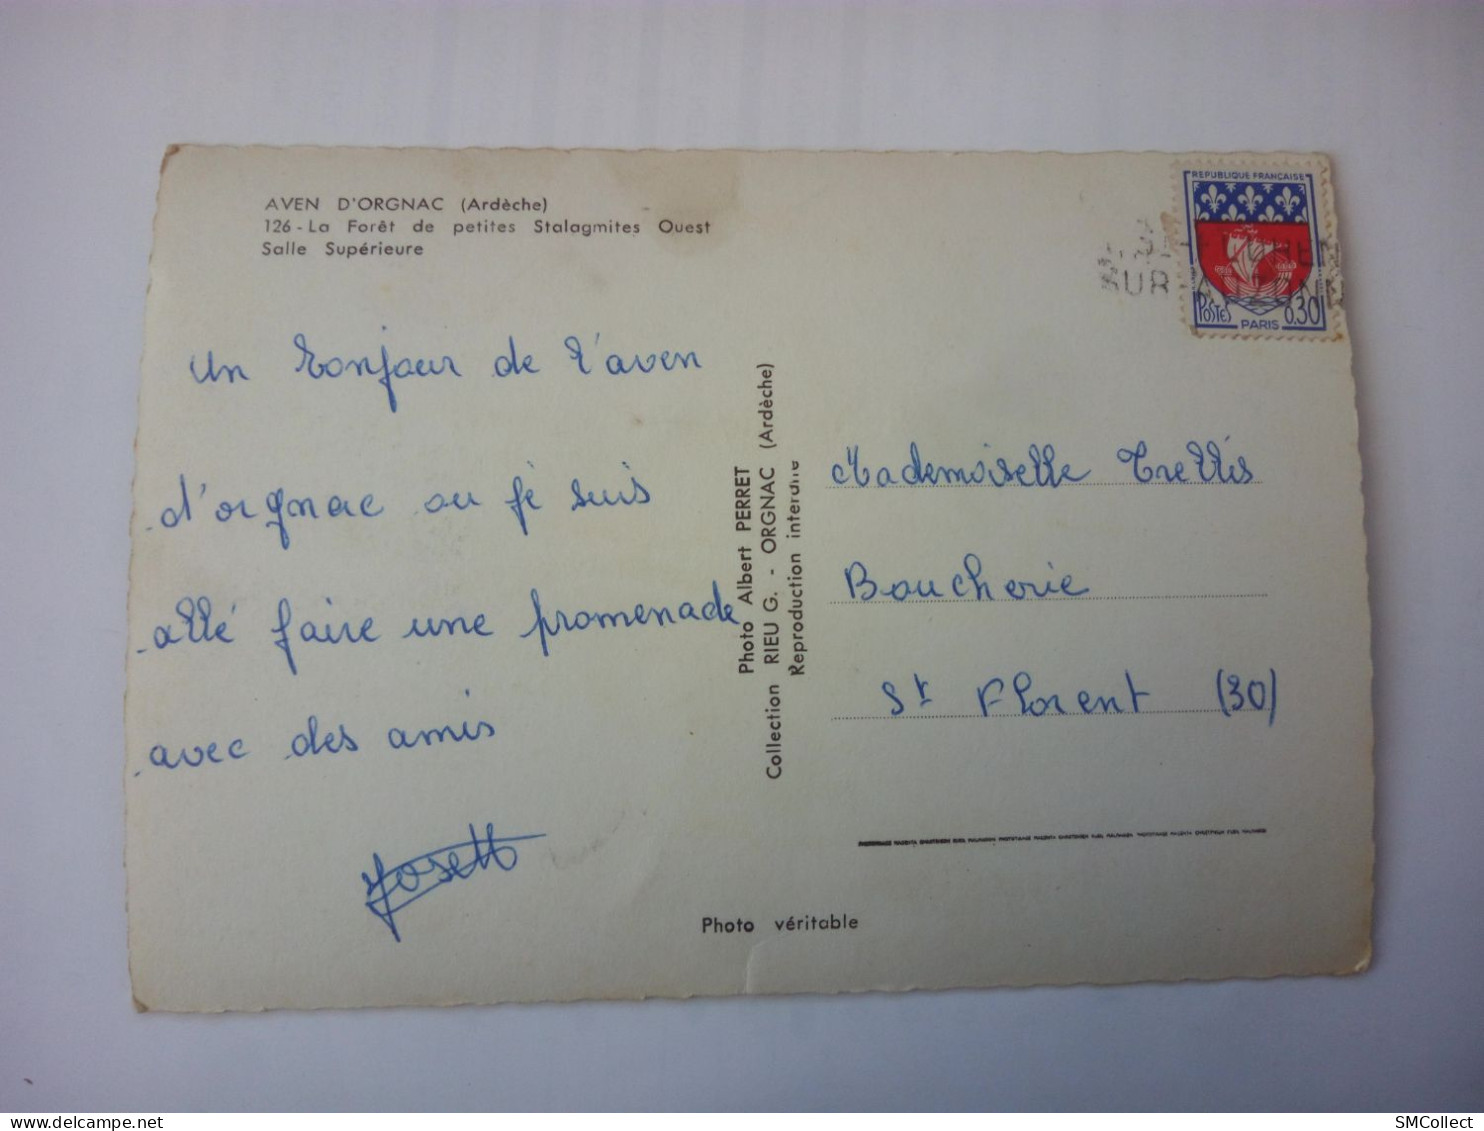 AVEN D'ORGNAC (Ardèche)
126 - La Forêt de petites Stalagmites Ouest
Salle Supérieure
Un bonjour de l'aven
d'orgnac ou je suis
allé faire une promenade
avec des amis
Josett
Photo Albert PERRET
Collection RIEU G. - ORGNAC (Ardèche)
Reproduction interdite
Photo véritable
REPUBLIQUE FRANÇAISE
POSTES
0.30
PARIS
SUR
Mademoiselle Trellis
Boucherie
St Florent (30)
SMCollect